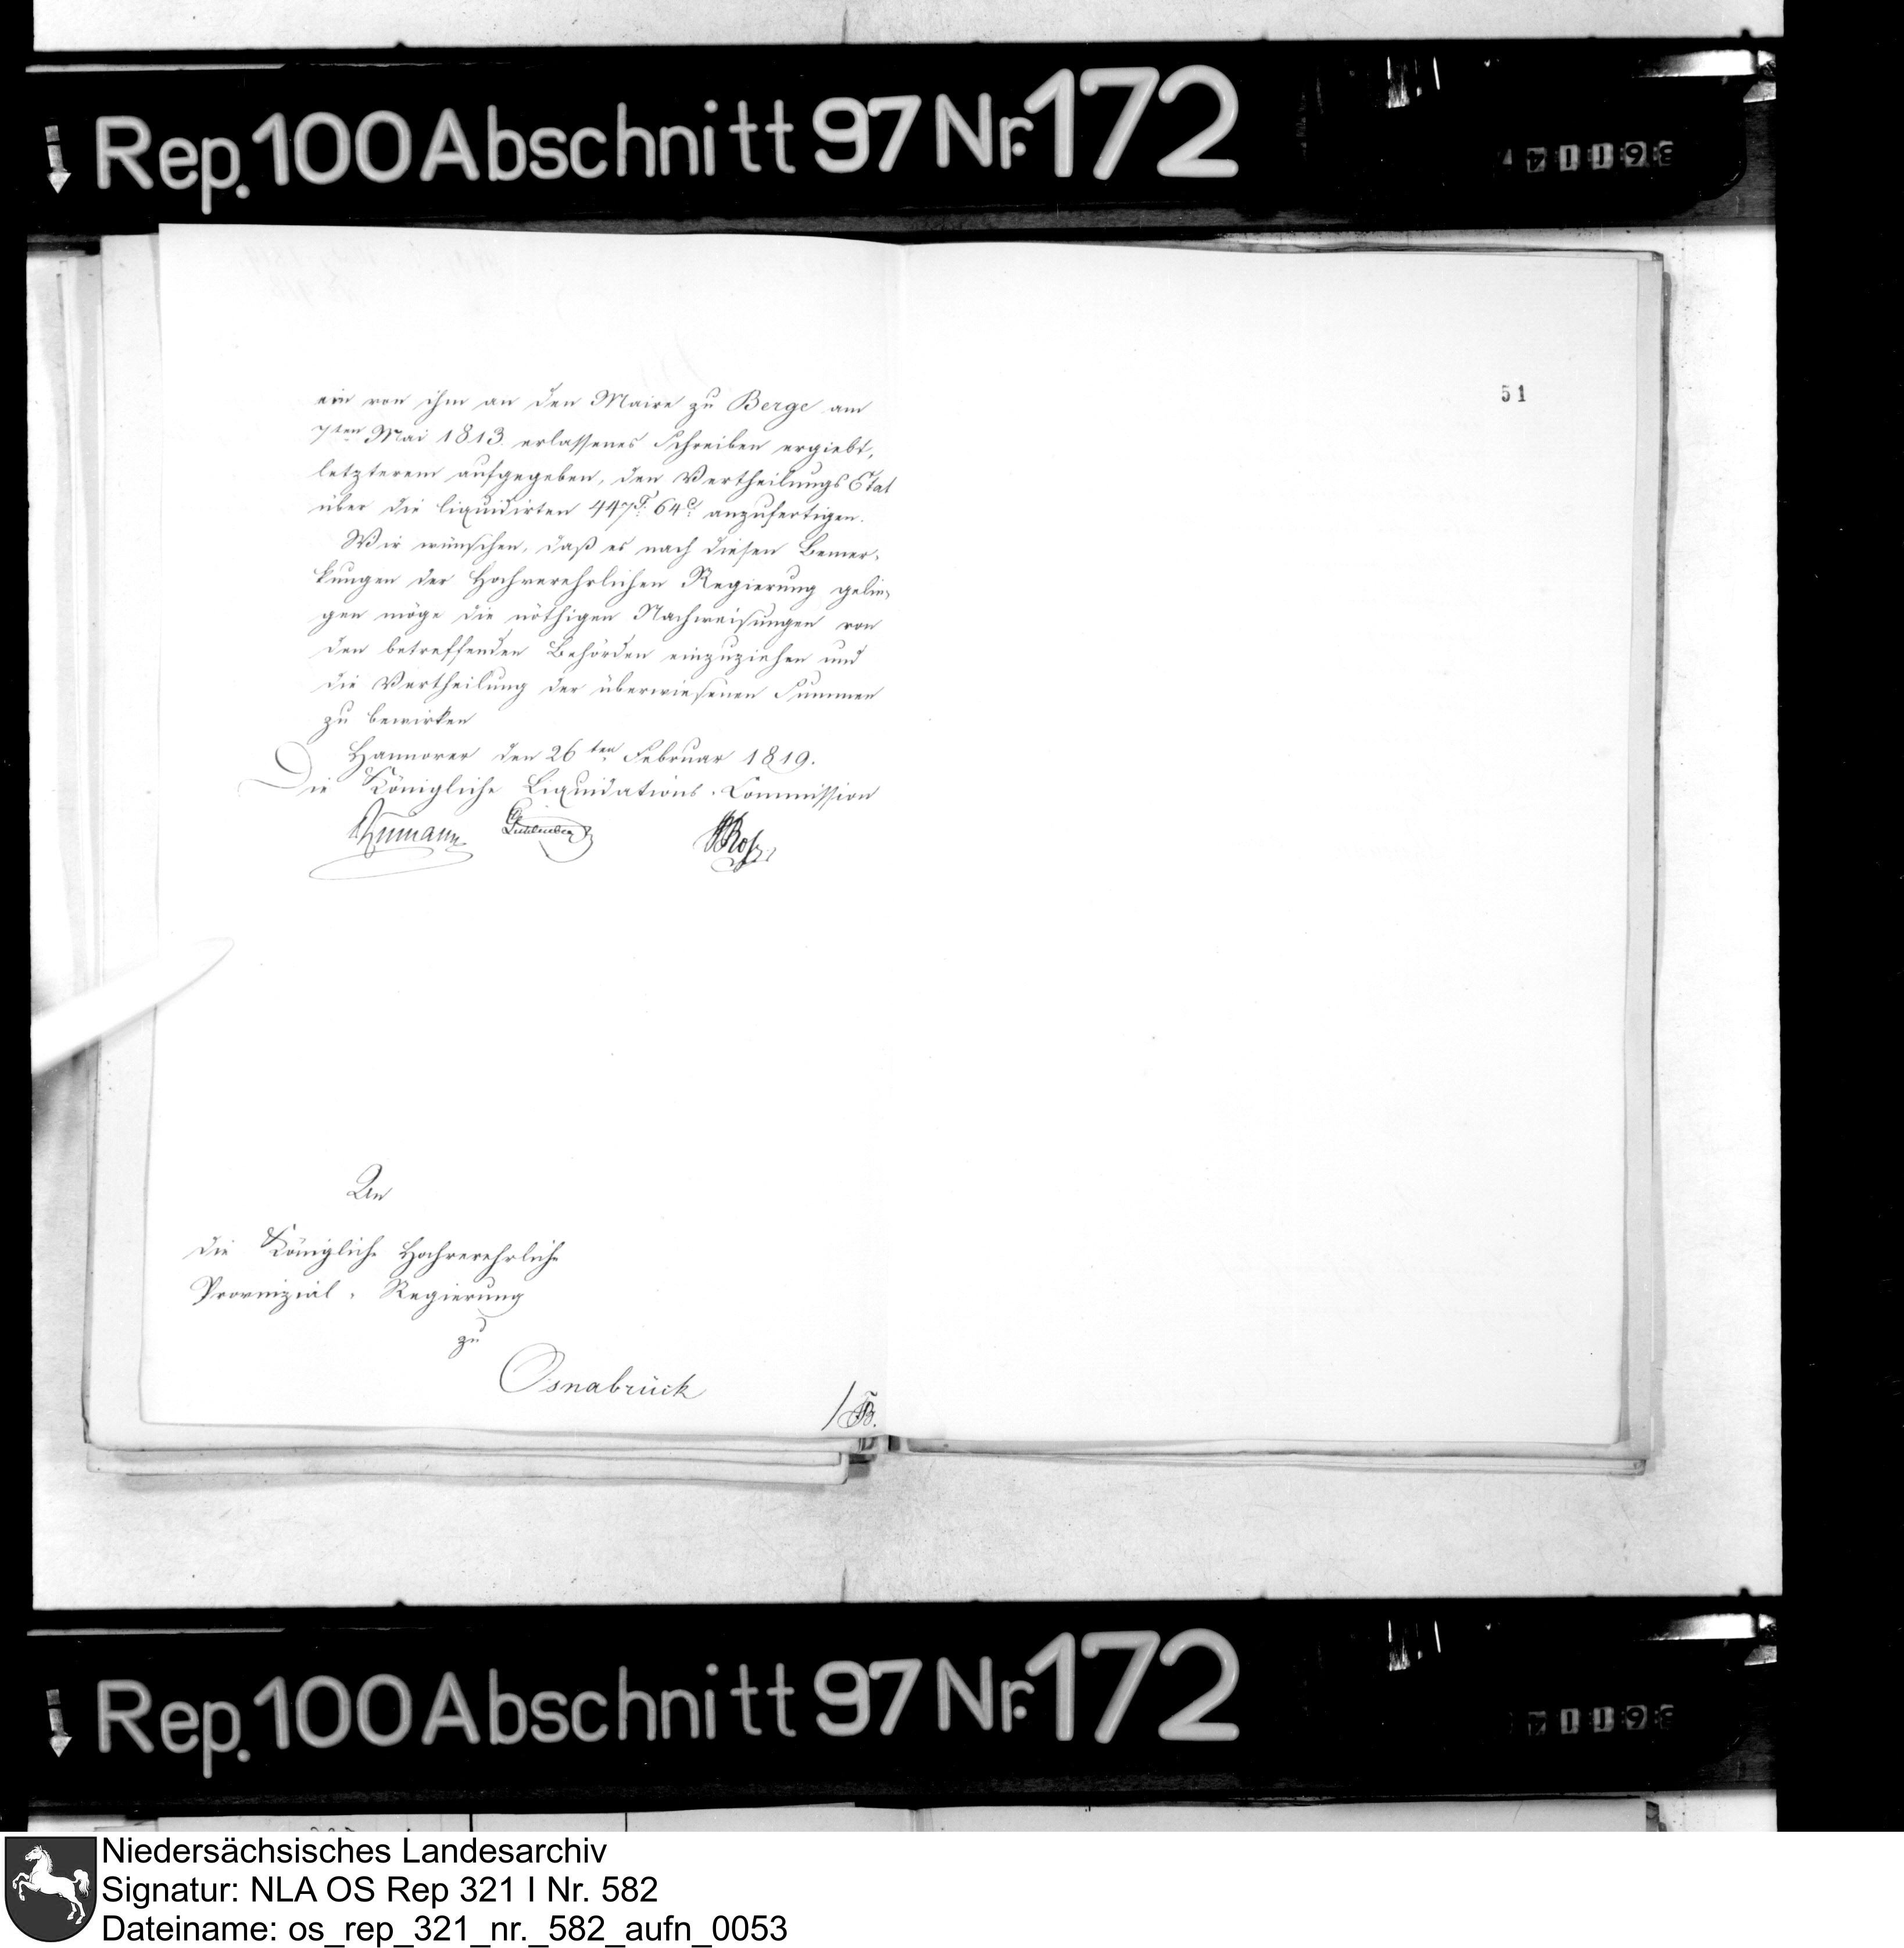 Rep. 100 Abschnitt 97 Nr. 172
ein von ihm an den Maire zu Berge am
7ten Mai 1813 erlassenes Schreiben ergiebt,
letzterem aufgegeben, den Vertheilungs Etat
über die liquidirten 447 64 anzufertigen.
Wir wünschen, daß es nach diesen Bemer-
kungen der Hochverehrlichen Regierung gelin-
gen möge die nöthigen Nachweisungen von
den betreffenden Behörden einzuziehen und
die Vertheilung der überwiesenen Summen
zu bewirken
Hannover den 26ten Februar 1819.
Die Königliche Liquidations-Commission
An
die Königliche Hochverehrliche
Provinzial-Regierung
zu
Osnabrück
51
Rep. 100 Abschnitt 97 Nr. 172
Niedersächsisches Landesarchiv
Signatur: NLA OS Rep 321 I Nr. 582
Dateiname: os_rep_321_nr._582_aufn_0053